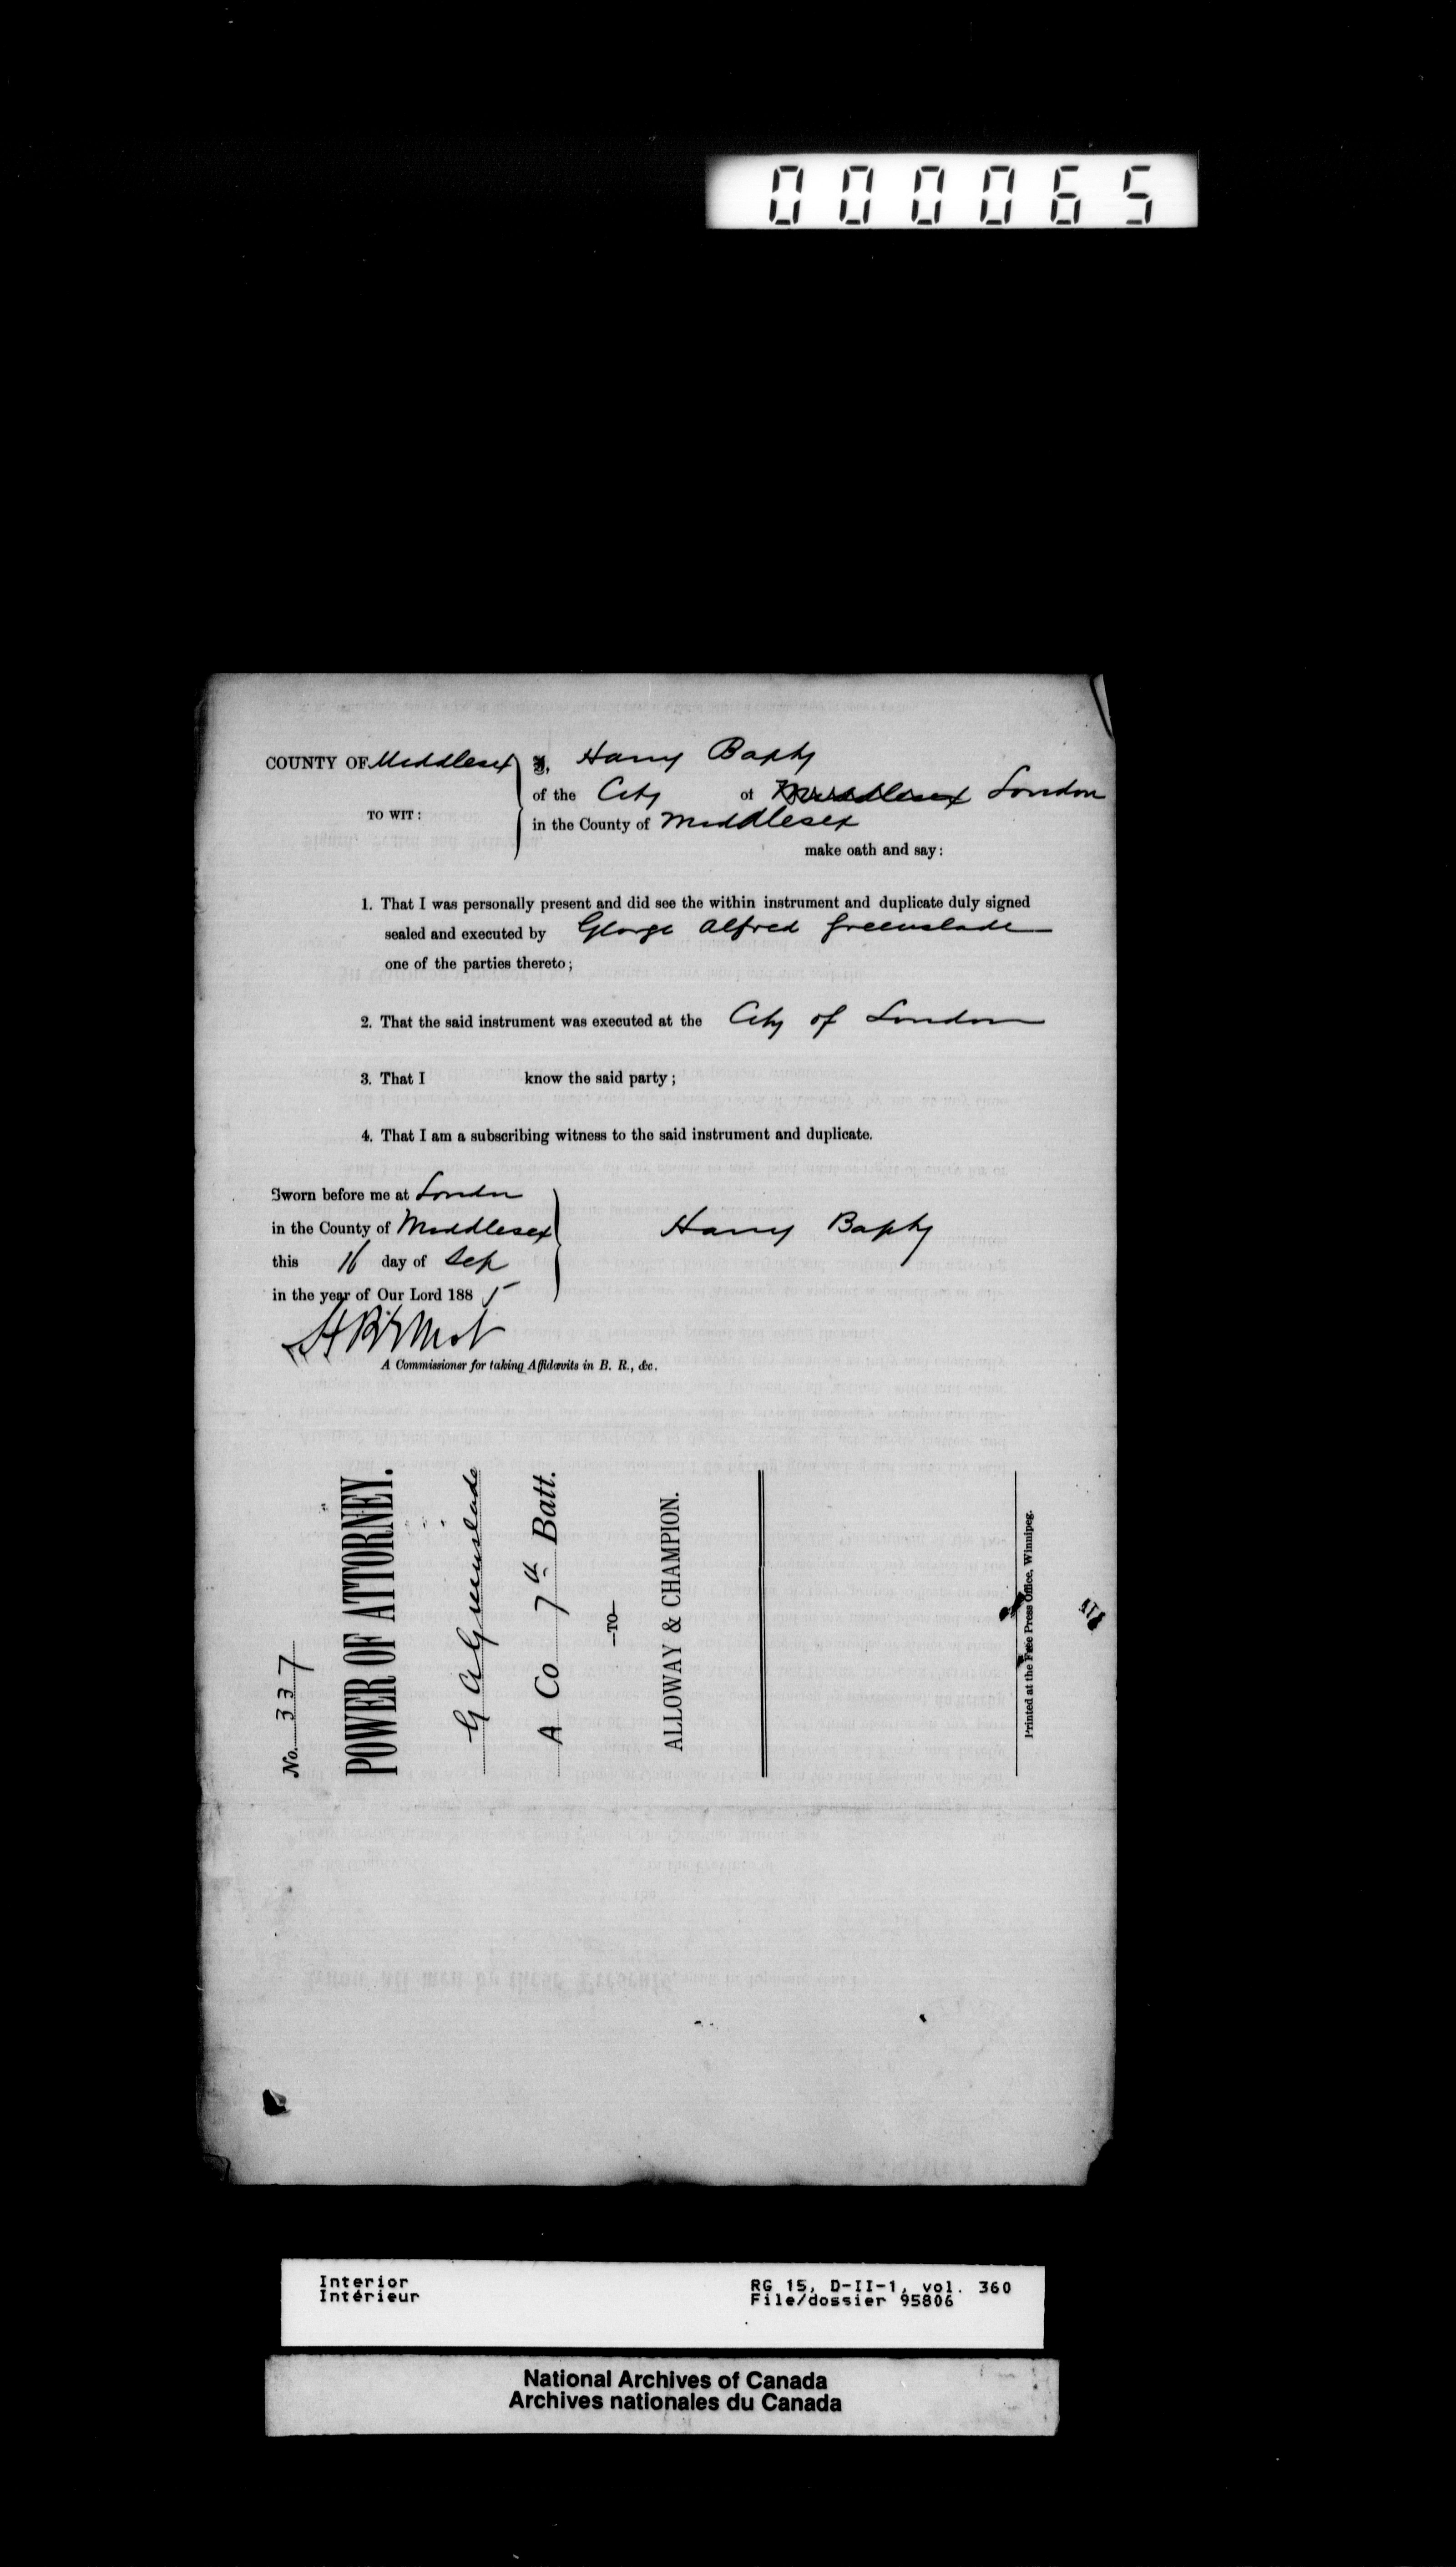 000065
COUNTY OF Middlesex
TO WIT:
I, Harry Bapty
of the City of Middlesex London
in the County of Middlesex
make oath and say:
1. That I was personally present and did see the within instrument and duplicate duly signed
sealed and executed by George Alfred Greenslade
one of the parties thereto;
2. That the said instrument was executed at the City of London
3. That I know the said party;
4. That I am a subscribing witness to the said instrument and duplicate.
Sworn before me at London
in the County of Middlesex
this 16 day of Sep
in the year of Our Lord 1885
Harry Bapty
A Commissioner for taking Affidavits in B. R., &c.
No. 337
POWER OF ATTORNEY.
G A Greenslade
A Co 7th Batt.
—TO—
ALLOWAY & CHAMPION.
Printed at the Free Press Office, Winnipeg.
Interior
Intérieur
RG 15, D-II-1, vol. 360
File/dossier 95806
National Archives of Canada
Archives nationales du Canada